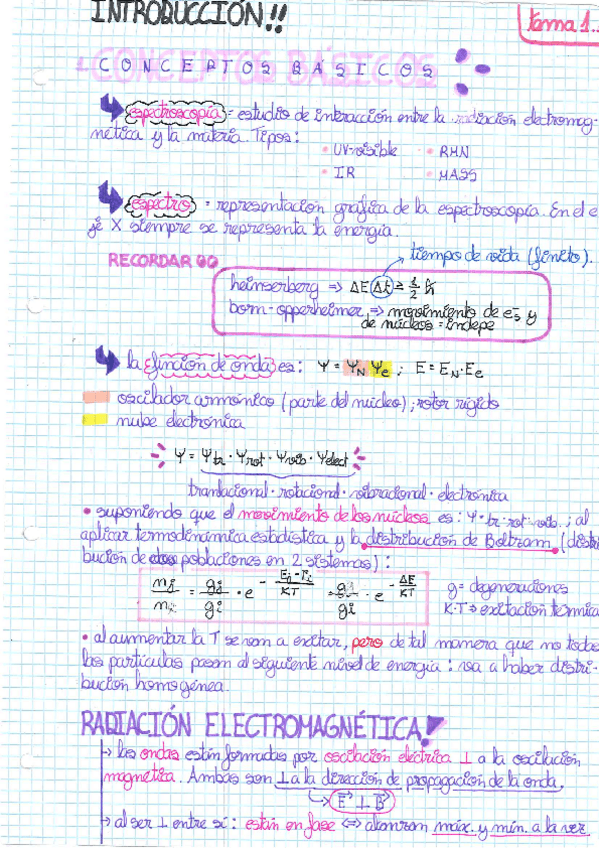 INTRODUCCIÓN!!
tema 1..
CONCEPTOS BÁSICOS
espectroscopía = estudio de interacción entre la radiación electromag-
nética y la materia. Tipos:
• UV-visible • RMN
• IR • MASS
espectro = representación gráfica de la espectroscopía. En el e
je X siempre se representa la energía.
tiempo de vida (finito).
RECORDAR
heinserberg ⇒ ΔE Δt ≥ 1/2 ħ
born-oppenheimer ⇒ movimiento de e⁻s y
de núcleos = indepe
la función de onda es: Ψ = ΨN Ψe ; E = EN·Ee
oscilador armónico (parte del núcleo); rotor rígido
nube electrónica
Ψ = Ψtr · Ψrot · Ψvib · Ψelect
tranlacional · rotacional · vibracional · electrónica
• suponiendo que el movimiento de los núcleos es: Ψ·tr·rot·vib. ; al
aplicar termodinámica estadística y la distribución de Boltzam (distri
bución de poblaciones en 2 sistemas):
nj/ni = gj/gi · e^-(Ej-Ei)/KT gj/gi · e^-ΔE/KT
g = degeneraciones
K·T → exitación térmica
• al aumentar la T se van a exitar, pero de tal manera que no todas
las partículas pasan al siguiente nivel de energía: va a haber distri-
bución homogénea.
RADIACIÓN ELECTROMAGNÉTICA!
→ las ondas están formadas por oscilación eléctrica ⊥ a la oscilación
magnética. Ambas son ⊥ a la dirección de propagación de la onda.
E ⊥ B
→ al ser ⊥ entre sí: están en fase ⇔ alcanzan máx. y mín. a la vez